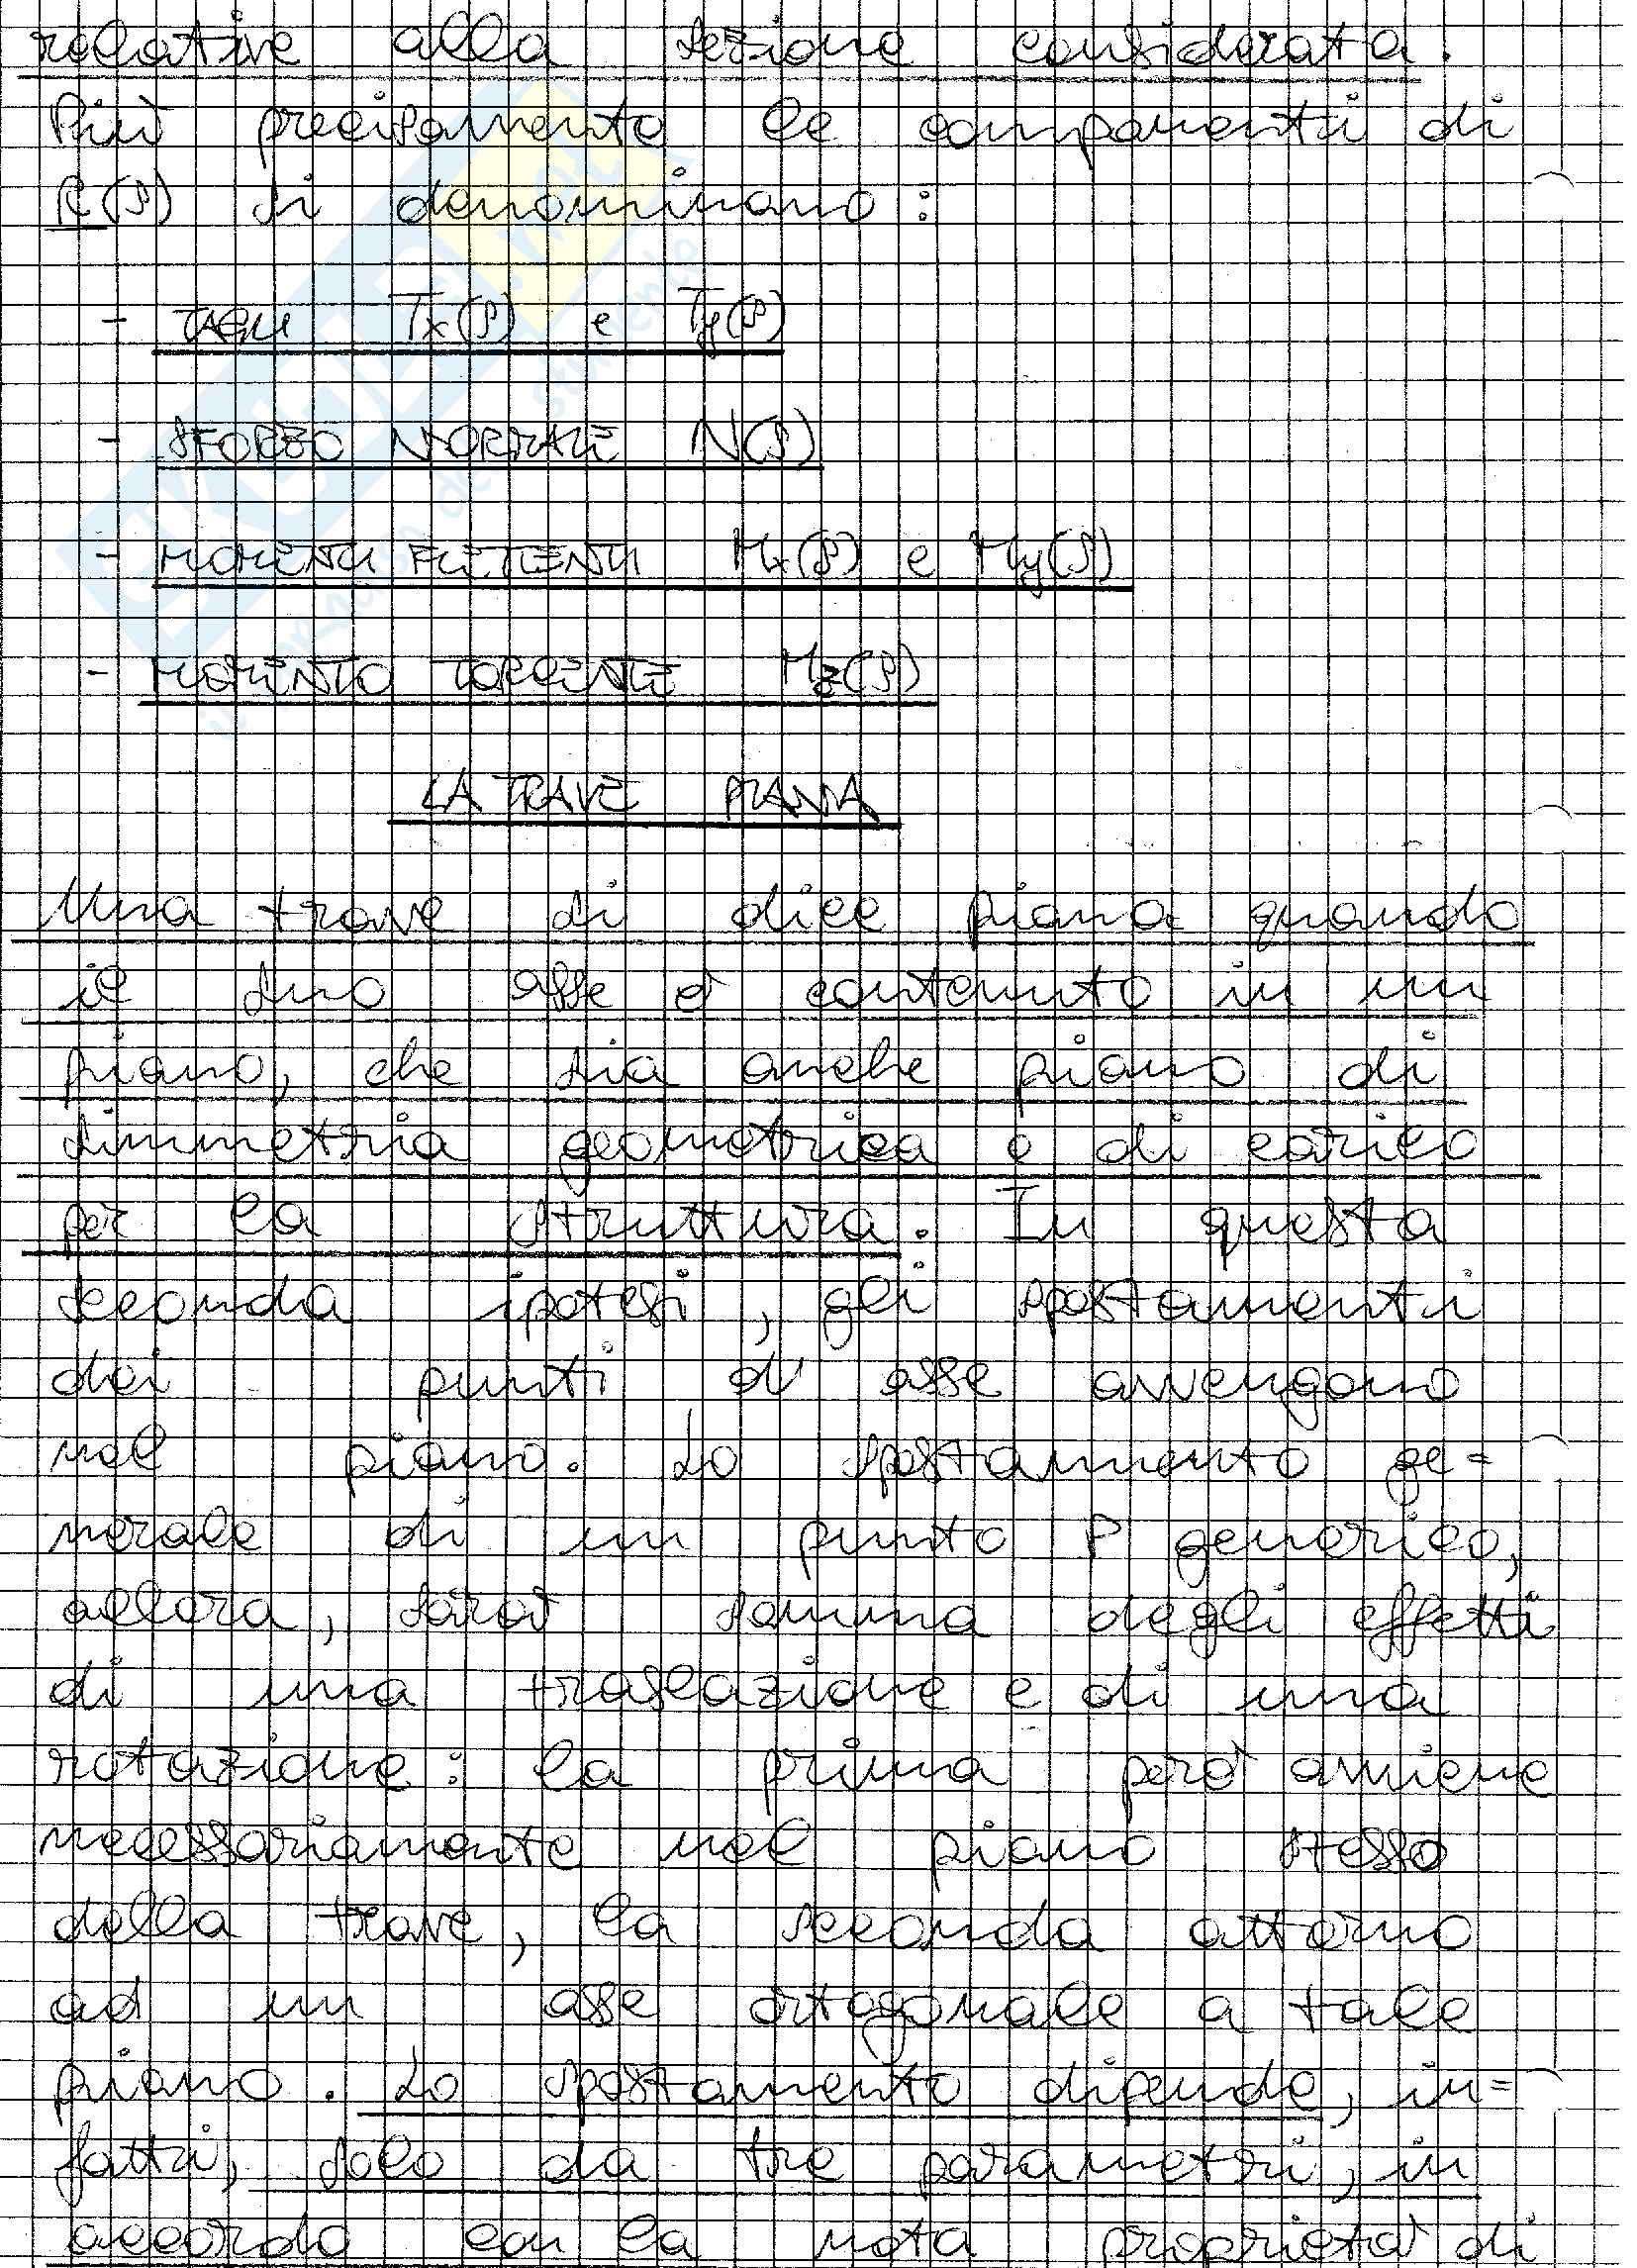 relative alla sezione considerata.
Più precisamente le componenti di
R(s) si denominano:
- TAGLI Tx(s) e Ty(s)
- SFORZO NORMALE N(s)
- MOMENTI FLETTENTI Mx(s) e My(s)
- MOMENTO TORCENTE Mz(s)
LA TRAVE PIANA
Una trave si dice piana quando
il suo asse è contenuto in un
piano, che sia anche piano di
simmetria geometrica e di carico
per la struttura. In questa
seconda ipotesi, gli spostamenti
dei punti d'asse avvengono
nel piano. Lo spostamento ge=
nerale di un punto P generico,
allora, sarà somma degli effetti
di una traslazione e di una
rotazione: la prima però avviene
necessariamente nel piano stesso
della trave, la seconda attorno
ad un asse ortogonale a tale
piano. Lo spostamento dipende, in=
fatti, solo da tre parametri, in
accordo con la nota proprietà di